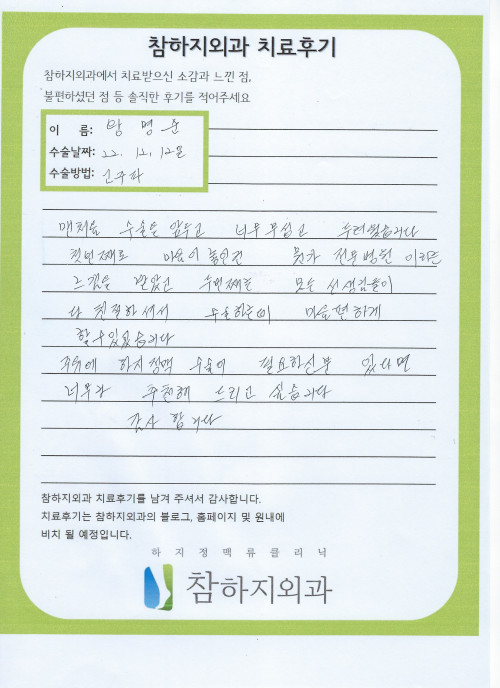 참하지외과 치료후기
참하지외과에서 치료받으신 소감과 느낀 점,
불편하셨던 점 등 솔직한 후기를 적어주세요
이 름: 방 명 준
수술날짜: 22. 12. 12일
수술방법: 고주파
맨처음 수술을 앞두고 너무 무섭고 두려웠습니다
첫번째로 마음이 놓인건 뭔가 전문병원 이라는
느낌을 받았고 두번째는 모든 선생님들이
다 친절하셔서 수술하는데 마음편하게
할 수 있었습니다
주위에 하지정맥 수술이 필요하신분 있다면
너무나 추천해 드리고 싶습니다
감사 합니다
참하지외과 치료후기를 남겨 주셔서 감사합니다.
치료후기는 참하지외과의 블로그, 홈페이지 및 원내에
비치 될 예정입니다.
하지정맥류클리닉
참하지외과